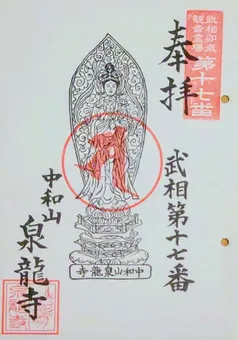 武相卯歳
観音霊場
第十七番
奉拝
武相第十七番
中和山
泉龍寺
寺龍泉山和中